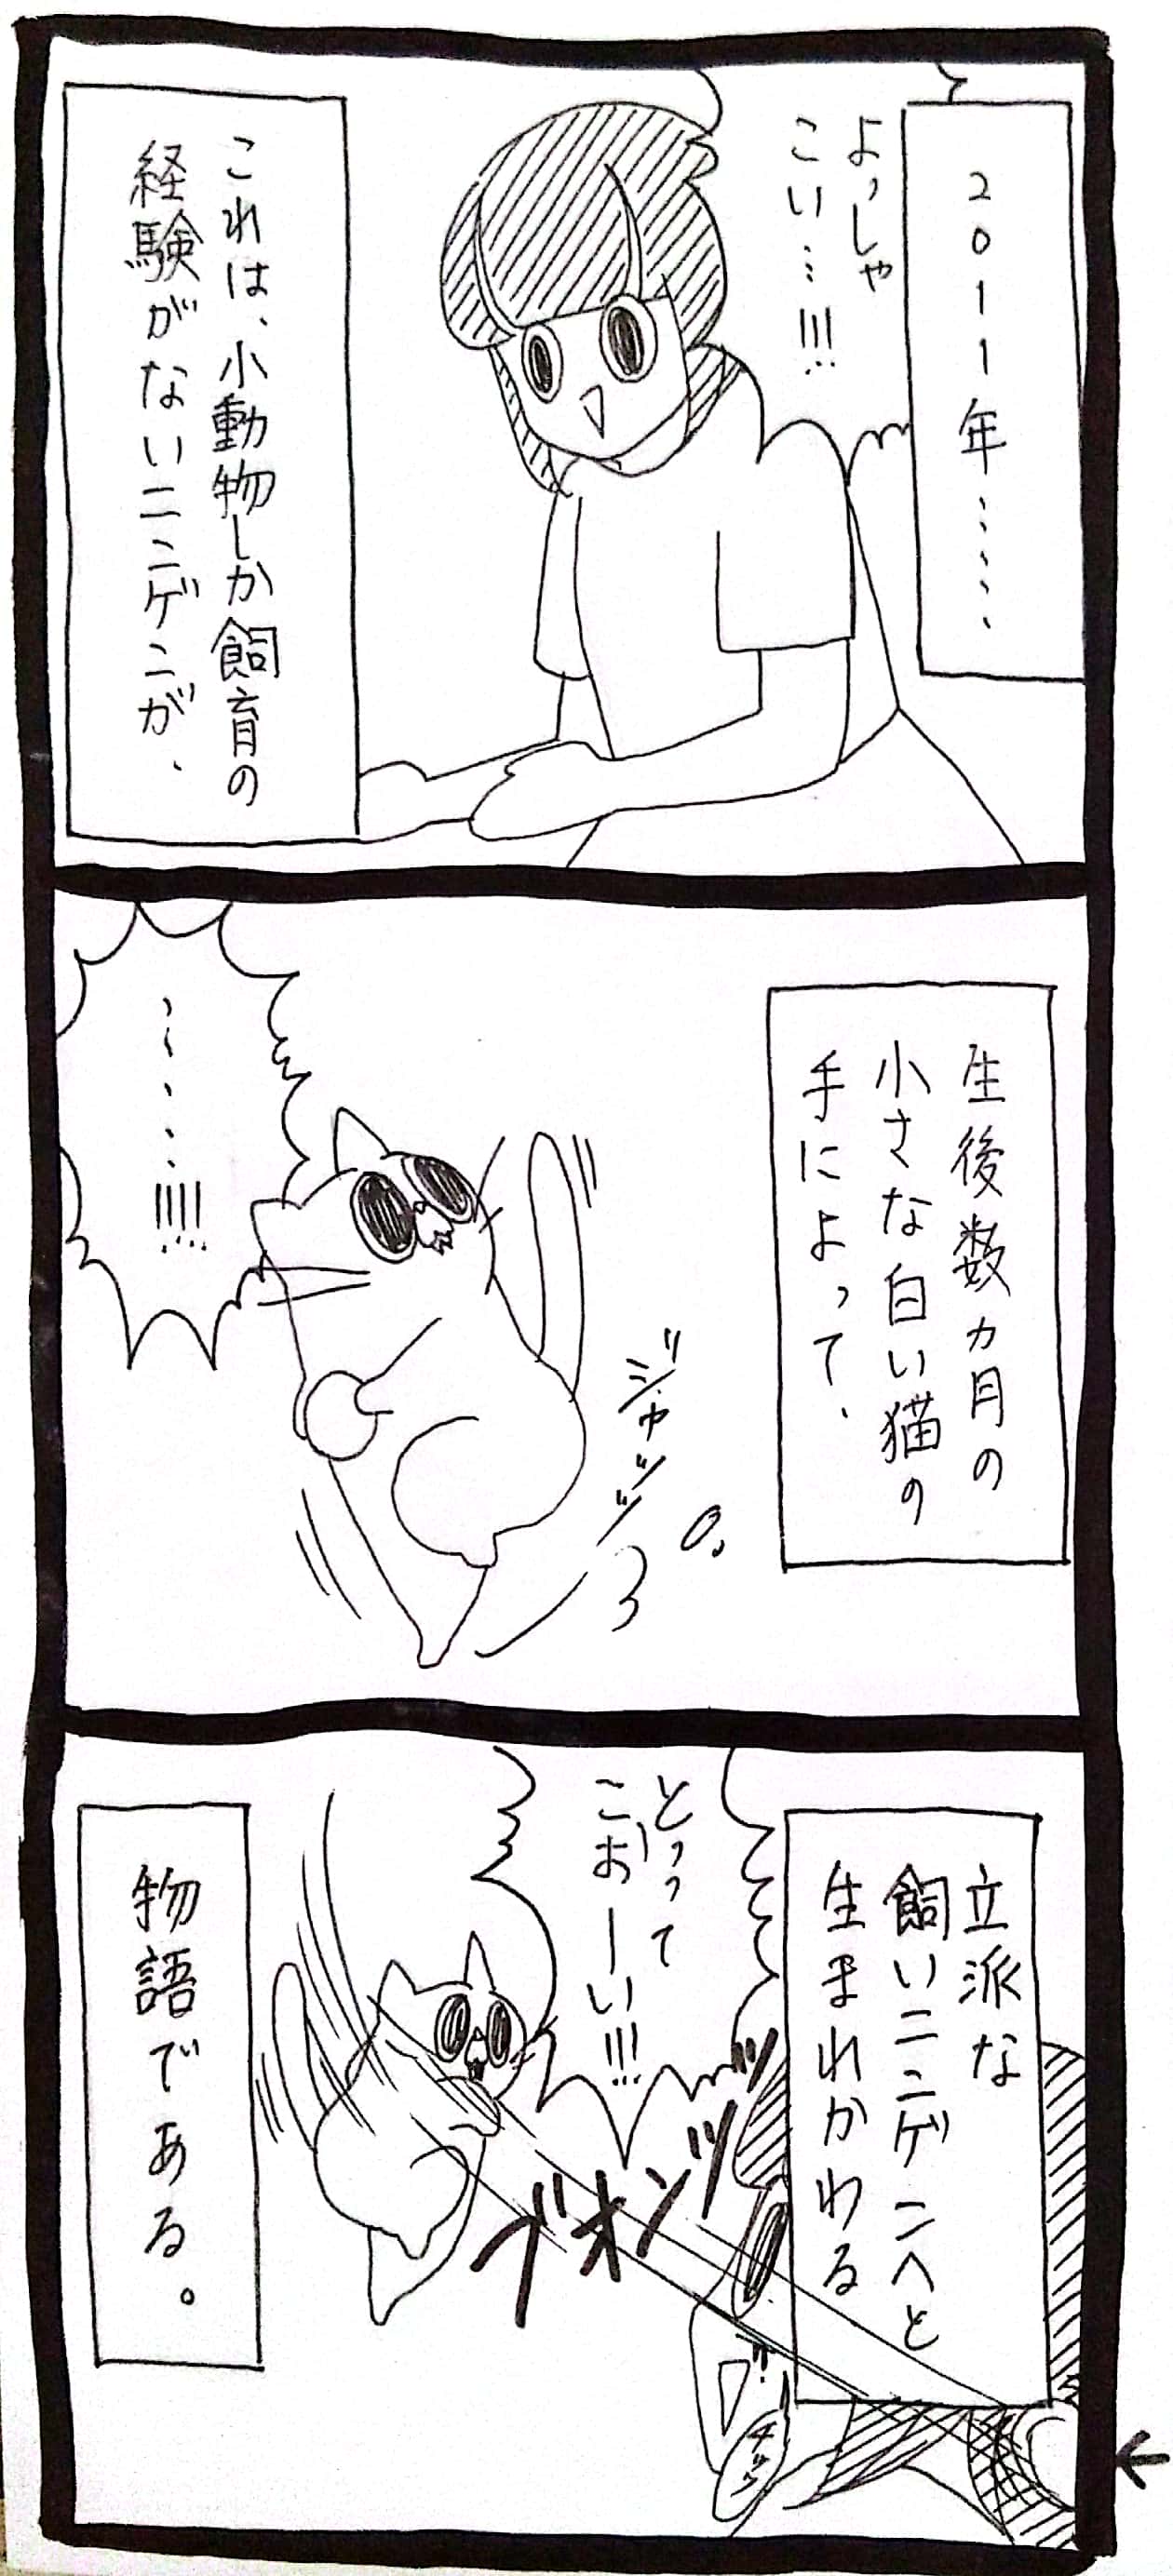 2011年・・・・・
よっしゃ
こい…!!!
これは、小動物しか飼育の
経験がないニンゲンが、
生後数カ月の
小さな白い猫の
手によって、
・・・・・!!!!
ジャッッ
立派な
飼いニンゲンへと
生まれかわる
とって
こおーい!!!
ブオンッ
チッ
物語である。